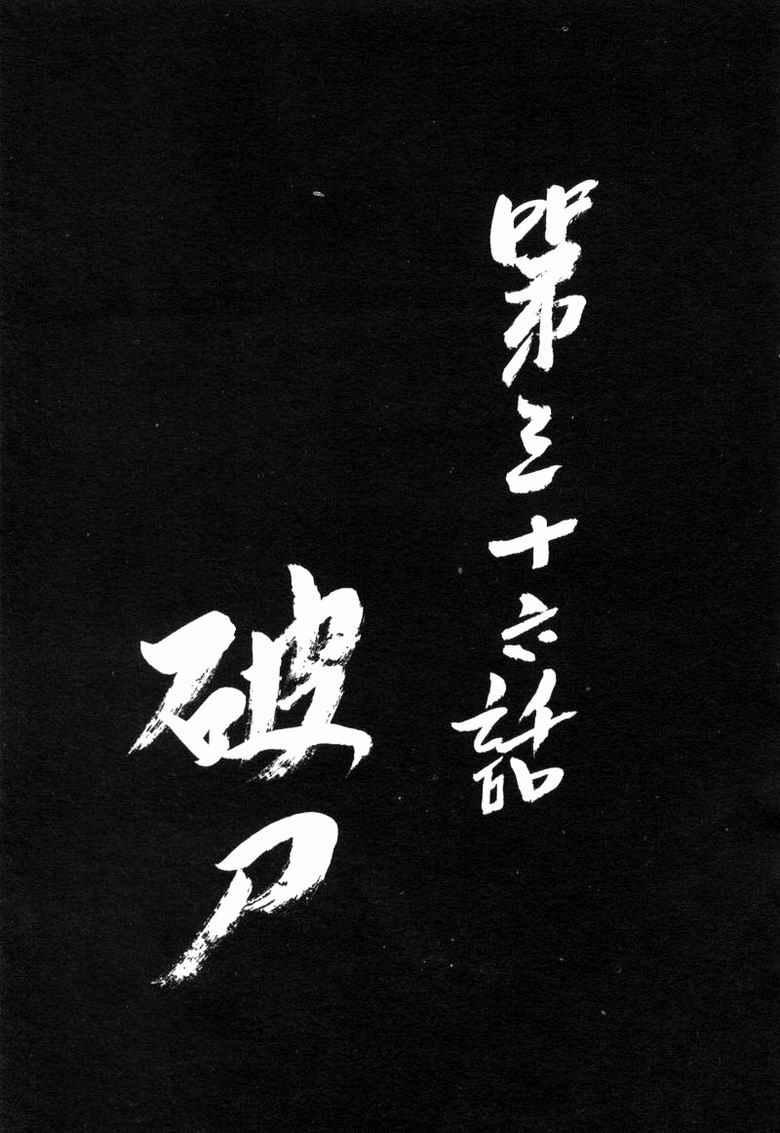 第三十六話
破刀